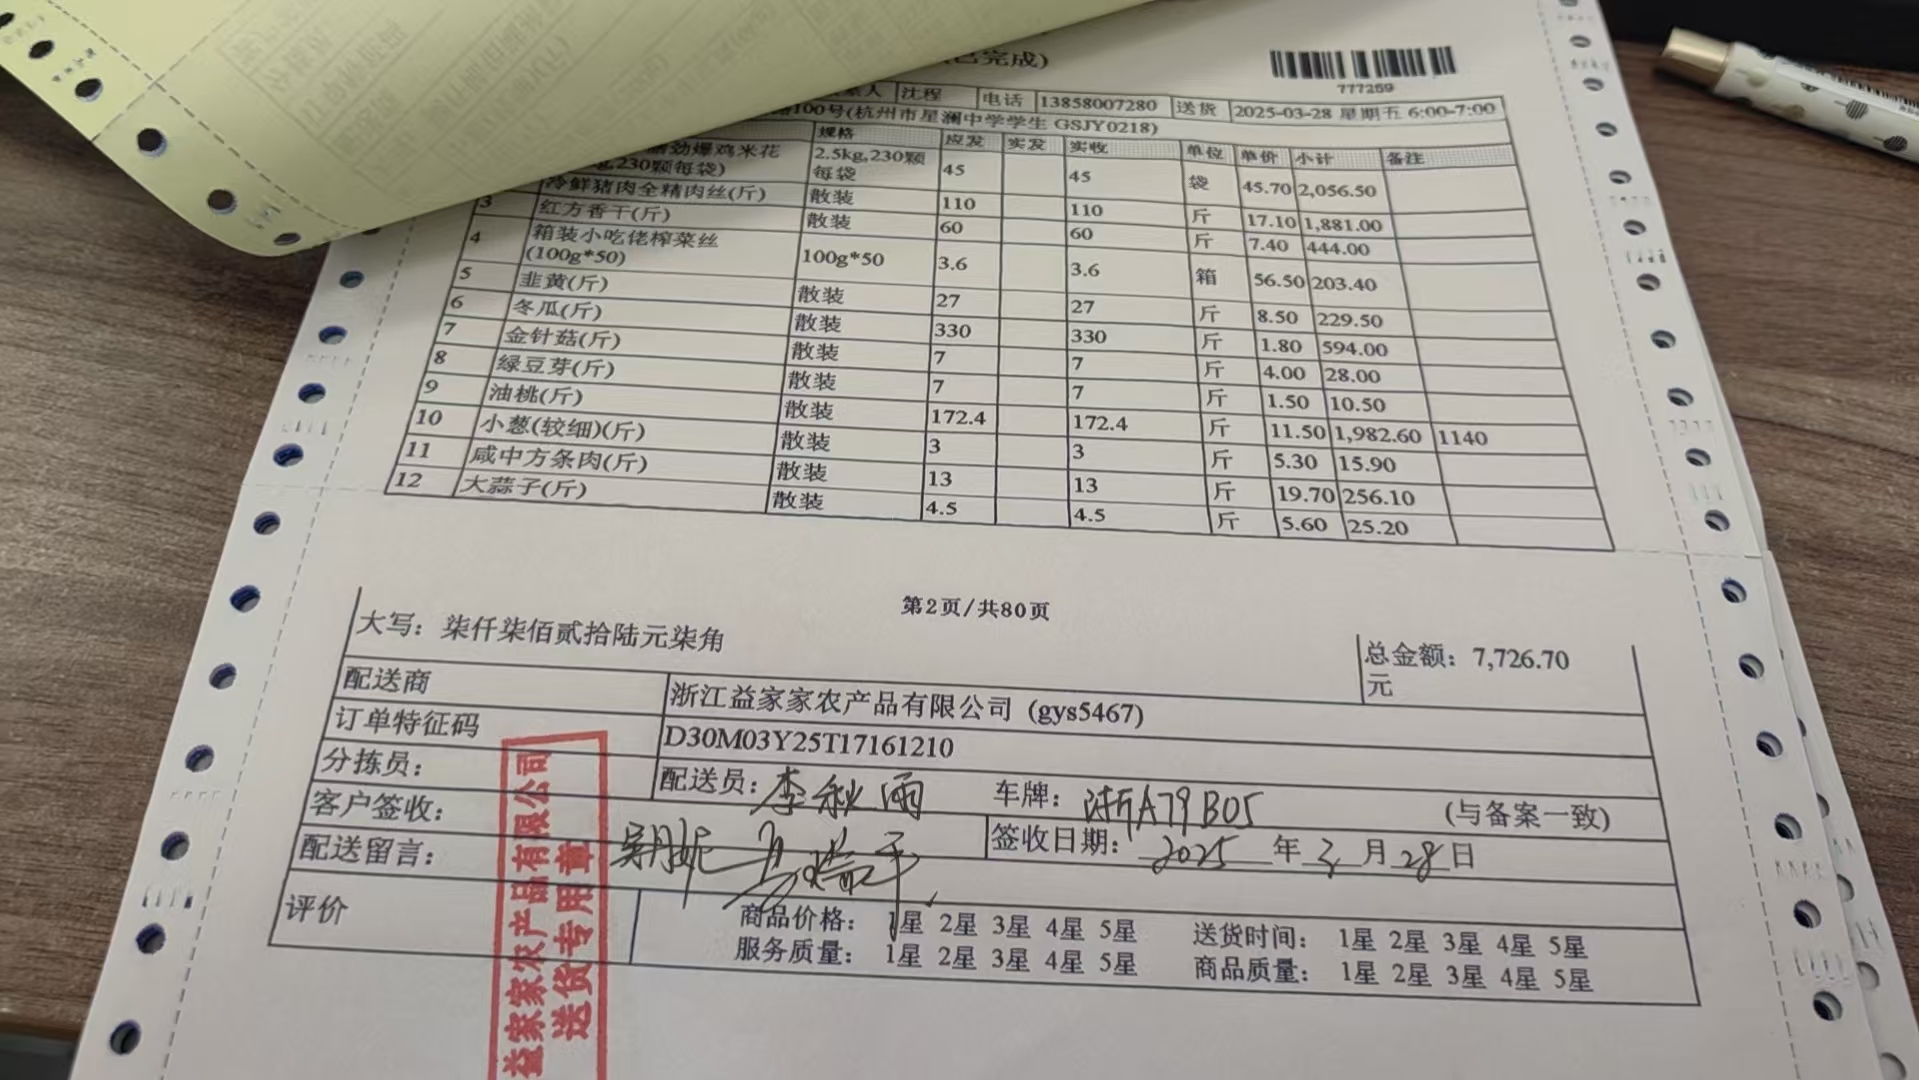 已完成)
777269
系人 沈程 电话 13858007280 送货 2025-03-28 星期五 6:00-7:00
路100号(杭州市星澜中学学生 GSJY0218)
规格 应发 实发 实收 单位 单价 小计 备注
劲爆鸡米花 2.5kg,230颗每袋 45 45 袋 45.70 2,056.50
kg,230颗每袋)
冷鲜猪肉全精肉丝(斤) 散装 110 110 斤 17.10 1,881.00
3 红方香干(斤) 散装 60 60 斤 7.40 444.00
4 箱装小吃佬榨菜丝(100g*50) 100g*50 3.6 3.6 箱 56.50 203.40
5 韭黄(斤) 散装 27 27 斤 8.50 229.50
6 冬瓜(斤) 散装 330 330 斤 1.80 594.00
7 金针菇(斤) 散装 7 7 斤 4.00 28.00
8 绿豆芽(斤) 散装 7 7 斤 1.50 10.50
9 油桃(斤) 散装 172.4 172.4 斤 11.50 1,982.60 1140
10 小葱(较细)(斤) 散装 3 3 斤 5.30 15.90
11 咸中方条肉(斤) 散装 13 13 斤 19.70 256.10
12 大蒜子(斤) 散装 4.5 4.5 斤 5.60 25.20
第2页/共80页
大写：柒仟柒佰贰拾陆元柒角 总金额：7,726.70元
配送商 浙江益家家农产品有限公司 (gys5467)
订单特征码 D30M03Y25T17161210
分拣员： 配送员：李秋雨 车牌：浙A79B05 (与备案一致)
客户签收： 签收日期：2025年3月28日
配送留言：
评价 商品价格： 1星 2星 3星 4星 5星 送货时间： 1星 2星 3星 4星 5星
服务质量： 1星 2星 3星 4星 5星 商品质量： 1星 2星 3星 4星 5星
益家家农产品有限公司
送货专用章